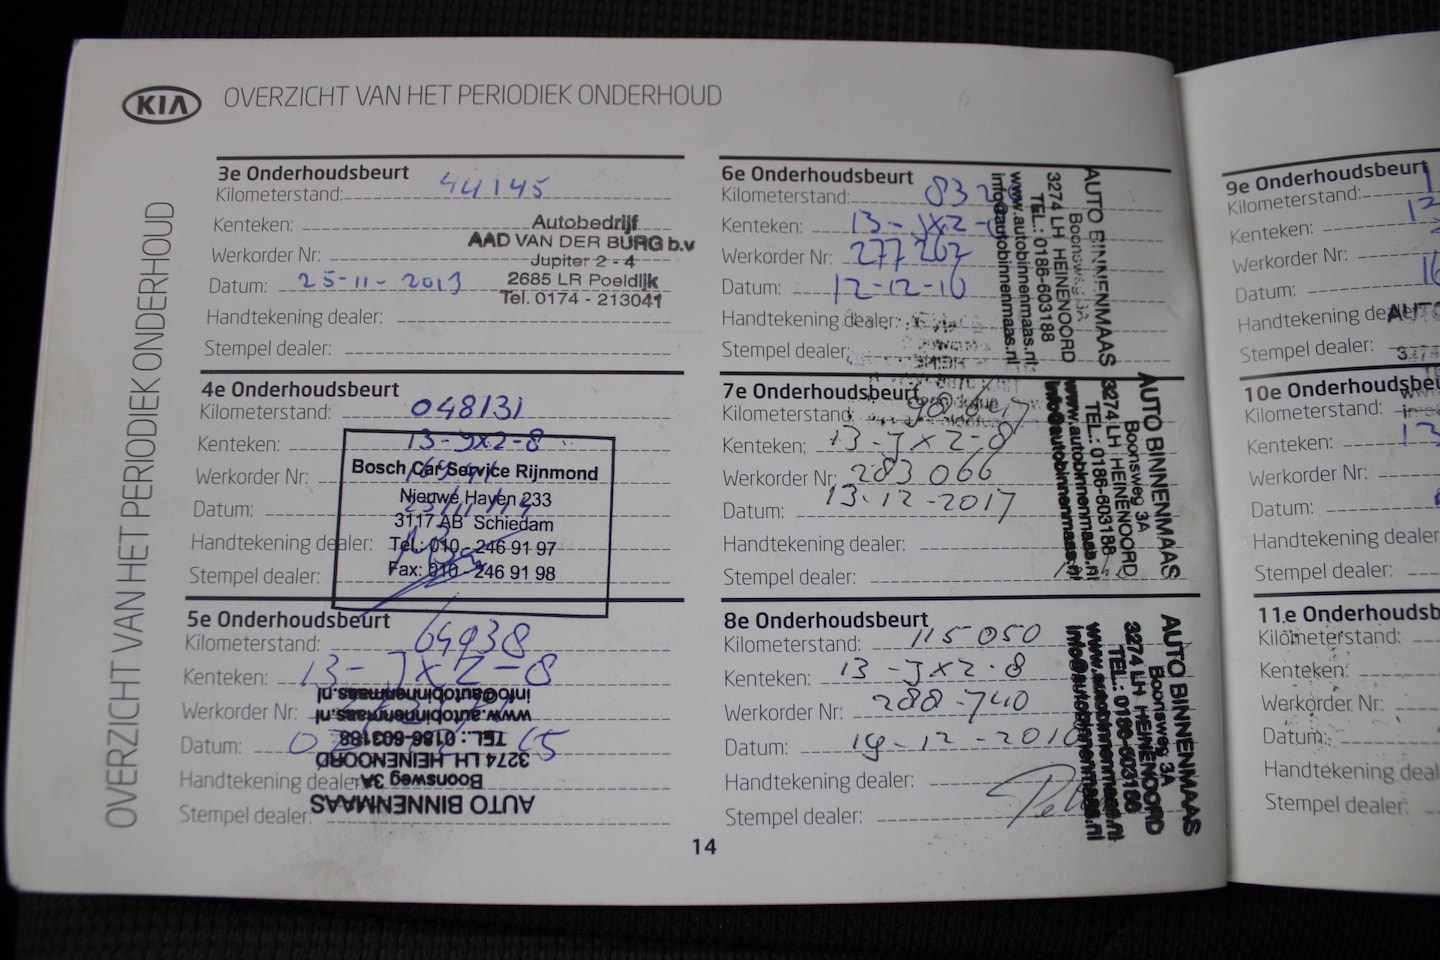 KIA
OVERZICHT VAN HET PERIODIEK ONDERHOUD
OVERZICHT VAN HET PERIODIEK ONDERHOUD
3e Onderhoudsbeurt
Kilometerstand: 44145
Kenteken:
Werkorder Nr:
Datum: 25-11-2013
Handtekening dealer:
Stempel dealer:
Autobedrijf
AAD VAN DER BURG b.v
Jupiter 2 - 4
2685 LR Poeldijk
Tel. 0174 - 213041
4e Onderhoudsbeurt
Kilometerstand: 048131
Kenteken: 13-JX2-8
Werkorder Nr:
Datum:
Handtekening dealer:
Stempel dealer:
Bosch Car Service Rijnmond
Nieuwe Haven 233
3117 AB Schiedam
Tel: 010 - 246 91 97
Fax: 010 - 246 91 98
5e Onderhoudsbeurt
Kilometerstand: 64938
Kenteken: 13-JXZ-8
Werkorder Nr:
Datum:
Handtekening dealer:
Stempel dealer:
AUTO BINNENMAAS
Boonsweg 3A
3274 LH HEINENOORD
TEL.: 0186-603188
www.autobinnenmaas.nl
info@autobinnenmaas.nl
6e Onderhoudsbeurt
Kilometerstand:
Kenteken: 13-JX2-
Werkorder Nr: 277262
Datum: 12-12-16
Handtekening dealer:
Stempel dealer:
AUTO BINNENMAAS
Boonsweg 3A
3274 LH HEINENOORD
TEL.: 0186-603188
www.autobinnenmaas.nl
info@autobinnenmaas.nl
7e Onderhoudsbeurt
Kilometerstand
Kenteken: 13-JX2-8
Werkorder Nr: 283066
Datum: 13-12-2017
Handtekening dealer:
Stempel dealer:
AUTO BINNENMAAS
Boonsweg 3A
3274 LH HEINENOORD
TEL.: 0186-603188
www.autobinnenmaas.nl
info@autobinnenmaas.nl
8e Onderhoudsbeurt
Kilometerstand: 115050
Kenteken: 13-JX2-8
Werkorder Nr: 288-740
Datum: 19-12-2018
Handtekening dealer:
Stempel dealer:
AUTO BINNENMAAS
Boonsweg 3A
3274 LH HEINENOORD
TEL.: 0186-603188
www.autobinnenmaas.nl
info@autobinnenmaas.nl
14
9e Onderhoudsbeurt
Kilometerstand:
Kenteken:
Werkorder Nr:
Datum:
Handtekening
Stempel dealer:
10e Onderhoudsbeu
Kilometerstand:
Kenteken:
Werkorder Nr:
Datum:
Handtekening dealer
Stempel dealer:
11e Onderhoudsb
Kilometerstand:
Kenteken:
Werkorder Nr:
Datum:
Handtekening deal
Stempel dealer: